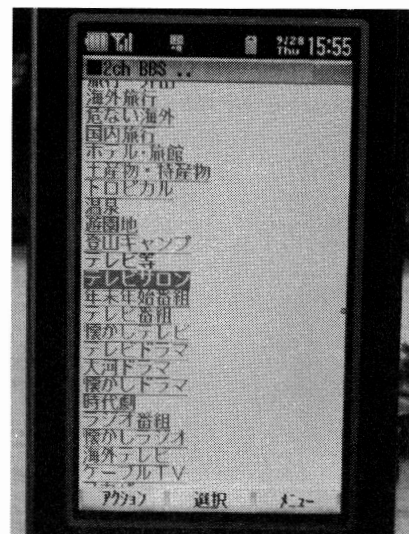 9/28 Thu 15:55
■2ch BBS ..
旅行・外出
海外旅行
危ない海外
国内旅行
ホテル・旅館
土産物・特産物
トロピカル
温泉
遊園地
登山キャンプ
テレビ等
テレビサロン
年末年始番組
テレビ番組
懐かしテレビ
テレビドラマ
大河ドラマ
懐かしドラマ
時代劇
ラジオ番組
懐かしラジオ
海外テレビ
ケーブルTV
アクション 選択 メニュー